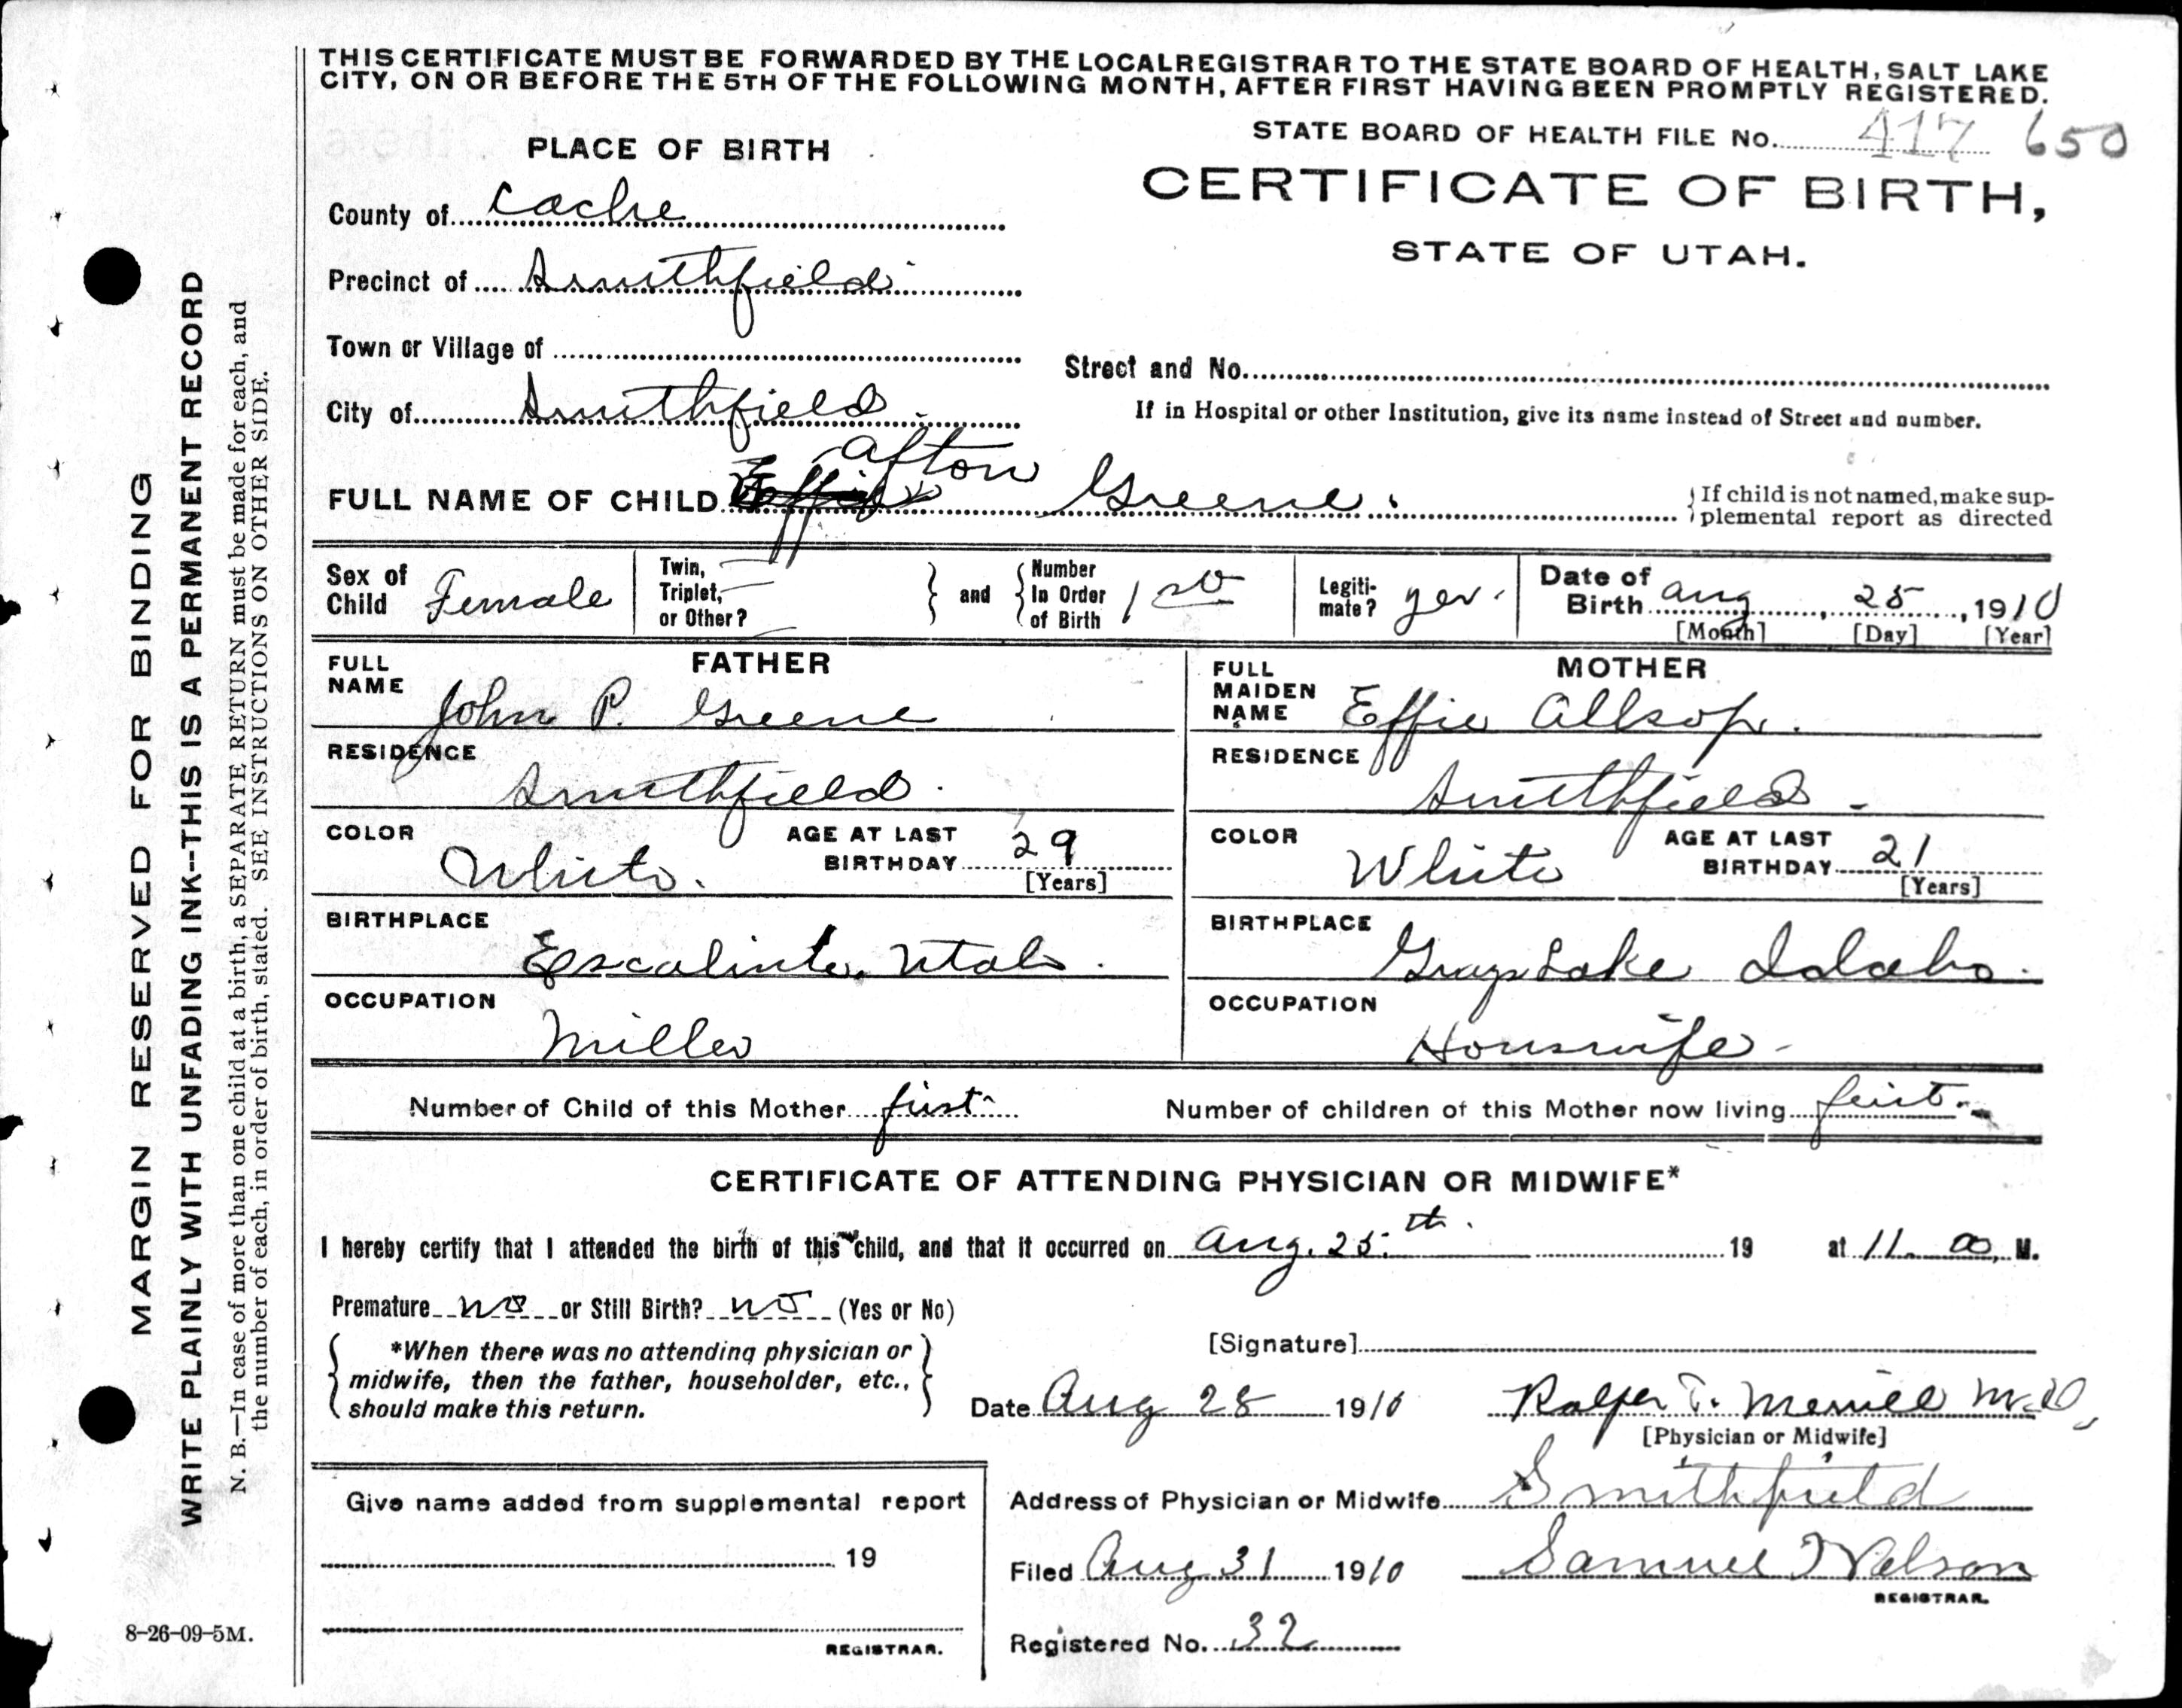 THIS CERTIFICATE MUST BE FORWARDED BY THE LOCAL REGISTRAR TO THE STATE BOARD OF HEALTH, SALT LAKE
CITY, ON OR BEFORE THE 5TH OF THE FOLLOWING MONTH, AFTER FIRST HAVING BEEN PROMPTLY REGISTERED.
STATE BOARD OF HEALTH FILE No. 417 650
CERTIFICATE OF BIRTH,
STATE OF UTAH.
PLACE OF BIRTH
County of Cache
Precinct of Smithfield
Town or Village of
Street and No.
City of Smithfield
If in Hospital or other Institution, give its name instead of Street and number.
Afton
FULL NAME OF CHILD Effie Greene.
If child is not named, make sup-
plemental report as directed
Sex of Child Female
Twin, Triplet, or Other?
and
Number In Order of Birth 1st
Legiti-mate? yes.
Date of Birth Aug 25, 1910
[Month] [Day] [Year]
FATHER
FULL NAME John P. Greene
RESIDENCE Smithfield.
COLOR White.
AGE AT LAST BIRTHDAY 29
[Years]
BIRTHPLACE Escalinte, Utah.
OCCUPATION Miller
MOTHER
FULL MAIDEN NAME Effie Allsop.
RESIDENCE Smithfield
COLOR White
AGE AT LAST BIRTHDAY 21
[Years]
BIRTHPLACE Grays Lake Idaho.
OCCUPATION Houswife
Number of Child of this Mother first
Number of children of this Mother now living first
CERTIFICATE OF ATTENDING PHYSICIAN OR MIDWIFE*
I hereby certify that I attended the birth of this child, and that it occurred on Aug. 25th. 19 at 11.00 M.
Premature no or Still Birth? no (Yes or No)
*When there was no attending physician or
midwife, then the father, householder, etc.,
should make this return.
[Signature]
Date Aug 28 1910
Ralph T. Merrill M.D.
[Physician or Midwife]
Address of Physician or Midwife Smithfield
Give name added from supplemental report
19
REGISTRAR.
Filed Aug 31 1910
Samuel Nelson
REGISTRAR.
Registered No. 32
MARGIN RESERVED FOR BINDING
WRITE PLAINLY WITH UNFADING INK--THIS IS A PERMANENT RECORD
N. B.—In case of more than one child at a birth, a SEPARATE RETURN must be made for each, and
the number of each, in order of birth, stated. SEE INSTRUCTIONS ON OTHER SIDE.
8-26-09-5M.